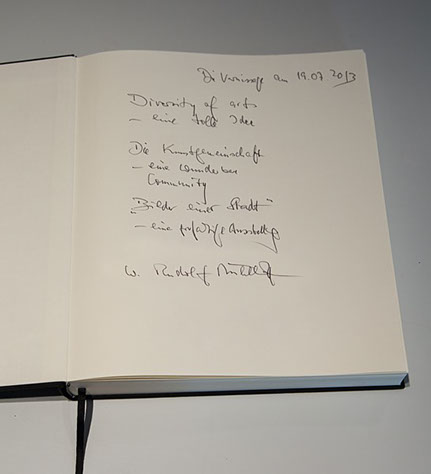 Die Vernissage am 19.07.2013
Diversity of arts
– eine tolle Idee
Die Kunstgemeinschaft
– eine wunderbare
Community
"Bilder einer Stadt"
– eine großartige Ausstellung
W. Rudolf